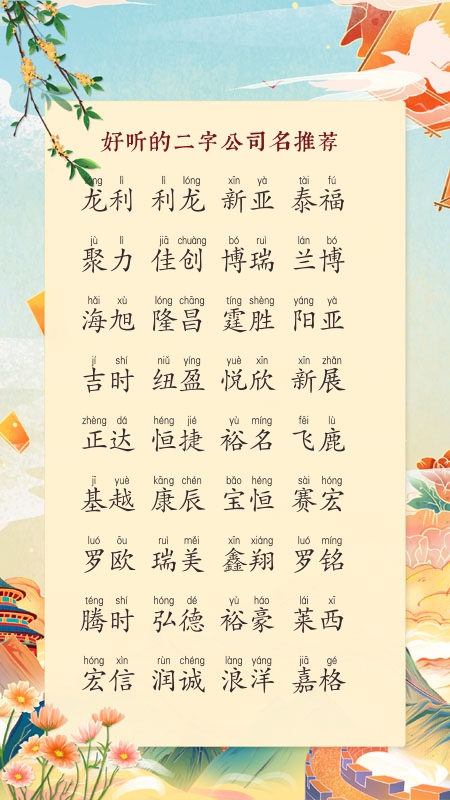 好听的二字公司名推荐
lóng lì lì lóng xīn yà tài fú
龙利 利龙 新亚 泰福
jù lì jiā chuàng bó ruì lán bó
聚力 佳创 博瑞 兰博
hǎi xù lóng chāng tíng shèng yáng yà
海旭 隆昌 霆胜 阳亚
jí shí niǔ yíng yuè xīn xīn zhǎn
吉时 纽盈 悦欣 新展
zhèng dá héng jié yù míng fēi lù
正达 恒捷 裕名 飞鹿
jī yuè kāng chén bǎo héng sài hóng
基越 康辰 宝恒 赛宏
luó ōu ruì měi xīn xiáng luó míng
罗欧 瑞美 鑫翔 罗铭
téng shí hóng dé yù háo lái xī
腾时 弘德 裕豪 莱西
hóng xìn rùn chéng làng yáng jiā gé
宏信 润诚 浪洋 嘉格